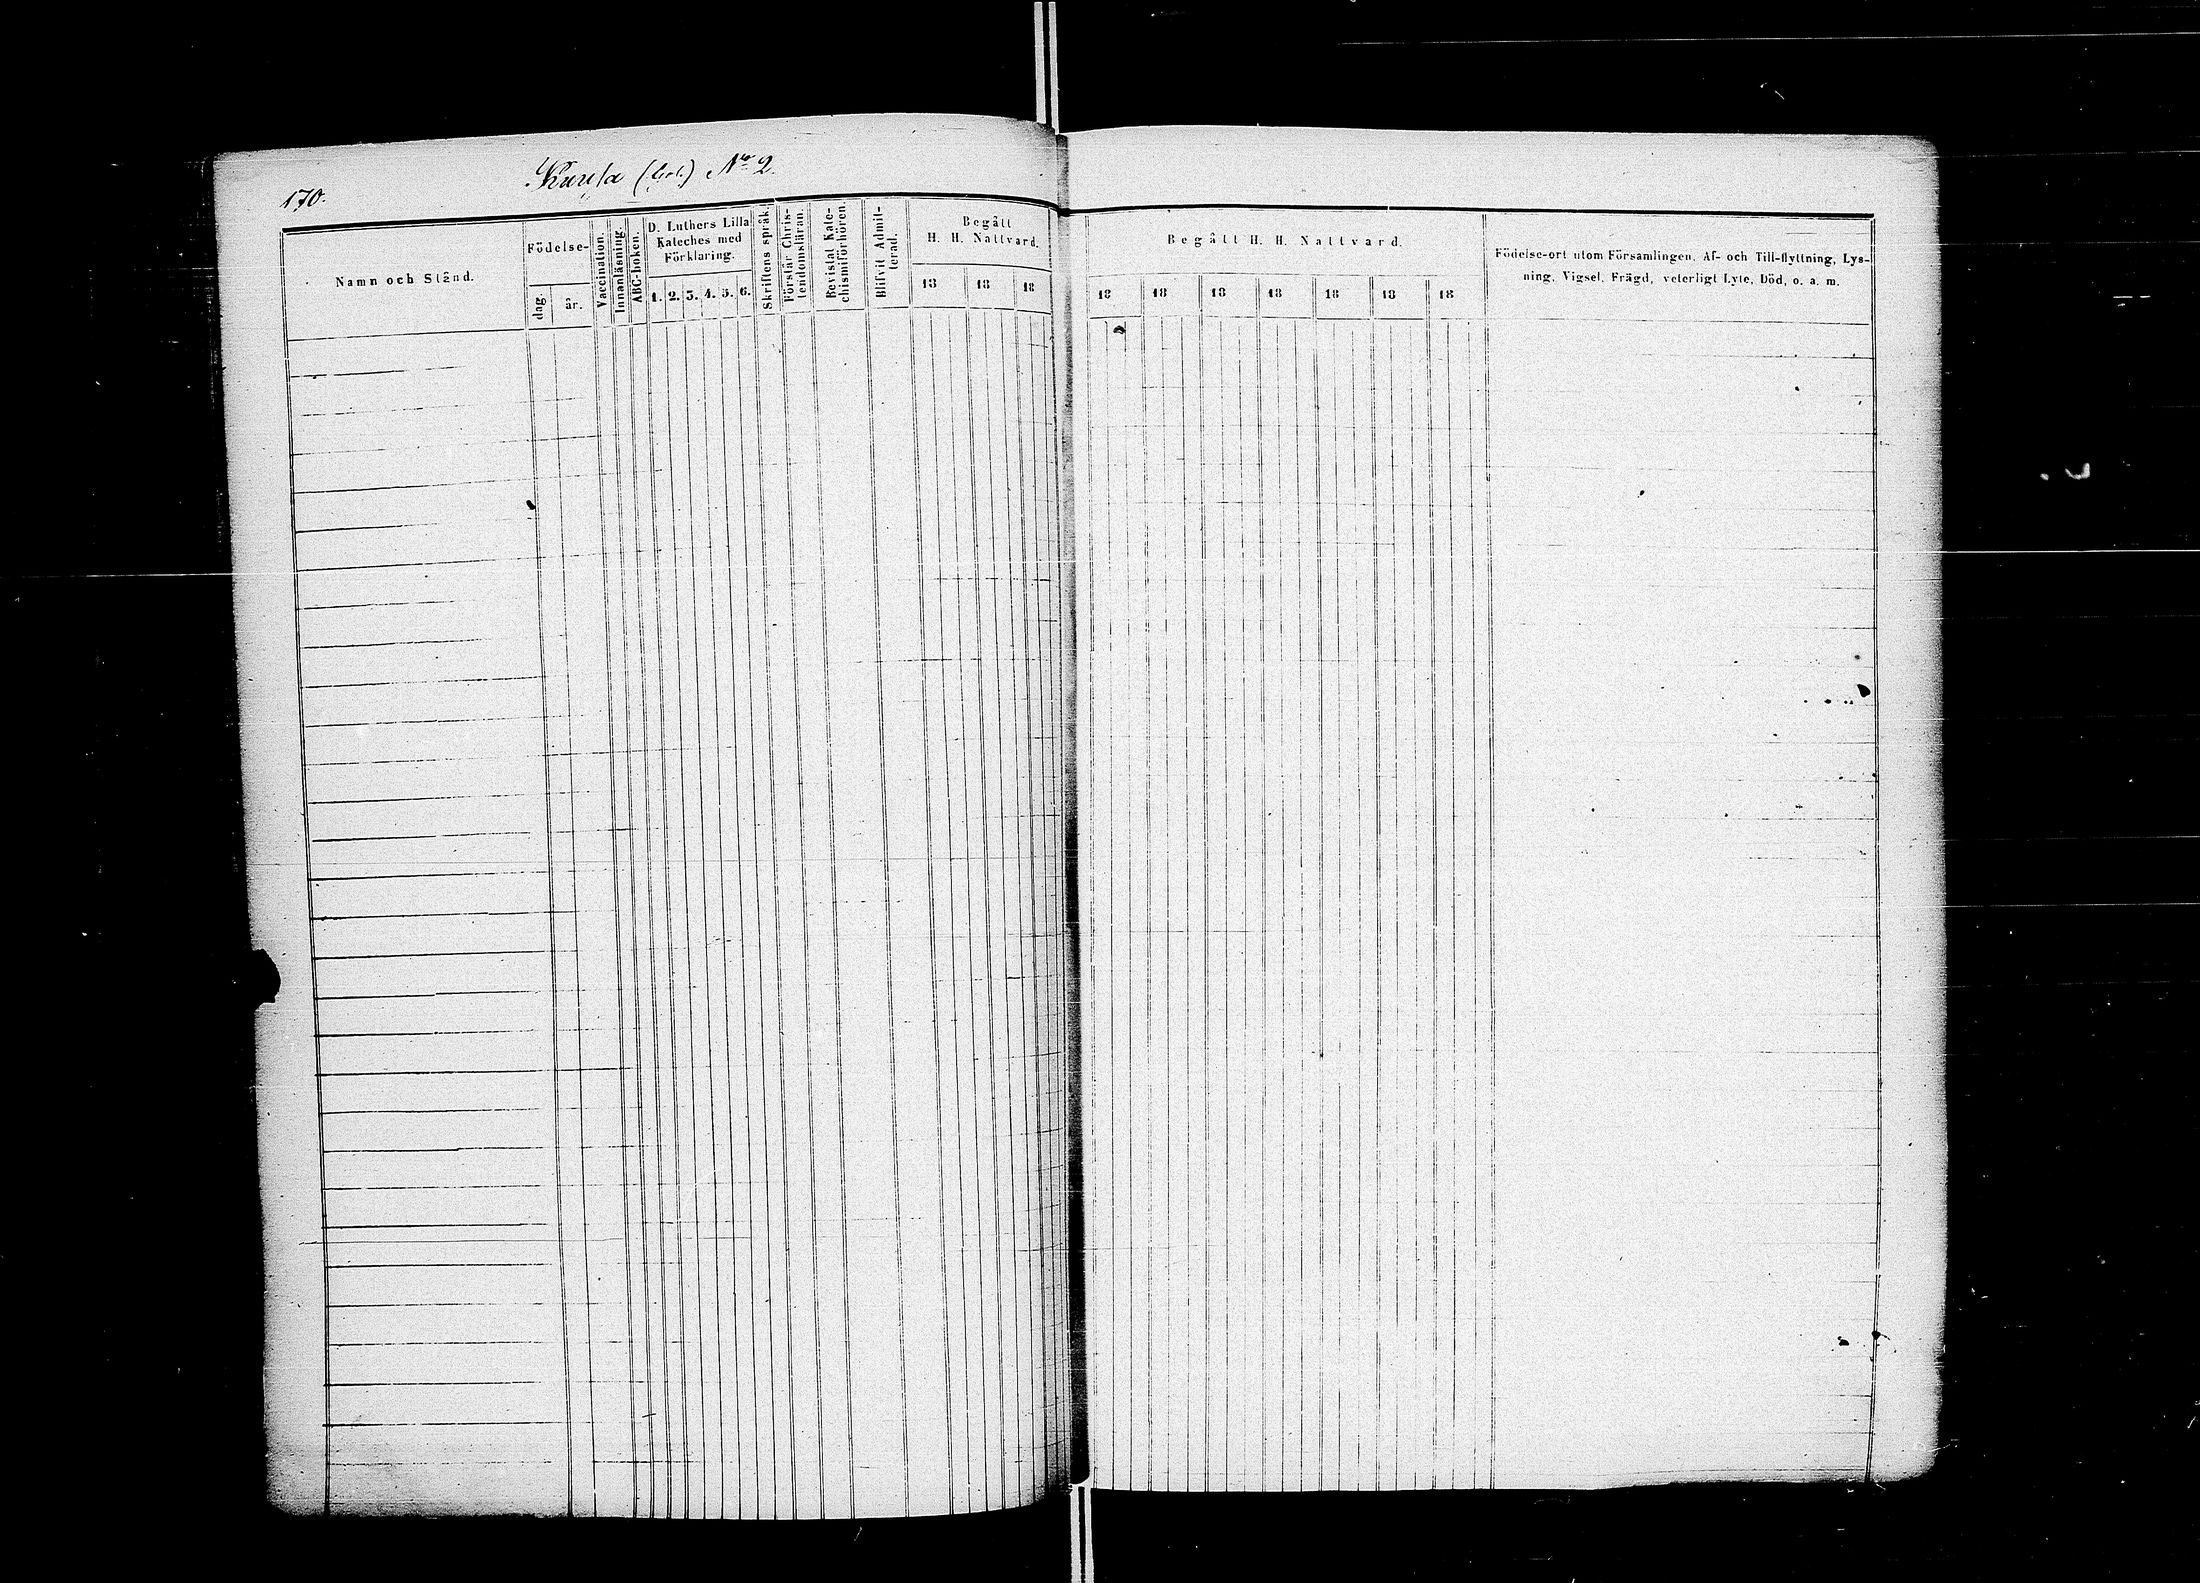 170.
No 2.
Namn och Stånd.
Födelse-
dag.
år.
Vaccination.
Innanläsning.
ABC-boken.
D. Luthers Lilla
Kateches med
Förklaring.
1. 2. 3. 4. 5. 6.
Skriftens språk.
Förstår Chris-
tendomsläran.
Bevistat Kate-
chismiförhören.
Blifvit Admit-
terad.
Begått
H. H. Nattvard.
18 18 18
Begått H. H. Nattvard.
18 18 18 18 18 18 18
Födelse-ort utom Församlingen, Af- och Till-flyttning, Lys-
ning, Vigsel, Frägd, veterligt Lyte, Död, o. a. m.